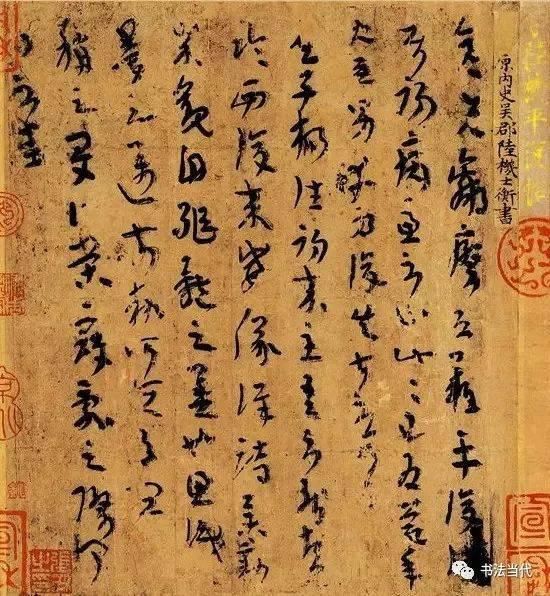 陸機平復帖
原内史吳郡陸機士衡書
彦先羸瘵恐難平復
往屬初病慮不止此此已為慶承
使唯男幸為復失前憂耳吳
子楊往初來主吾不能盡
臨西復來威儀詳跱舉動
成觀自軀體之美也思識
量之邁前執所恒有宜
稱之夏伯榮寇亂之際聞
問不悉
书法当代